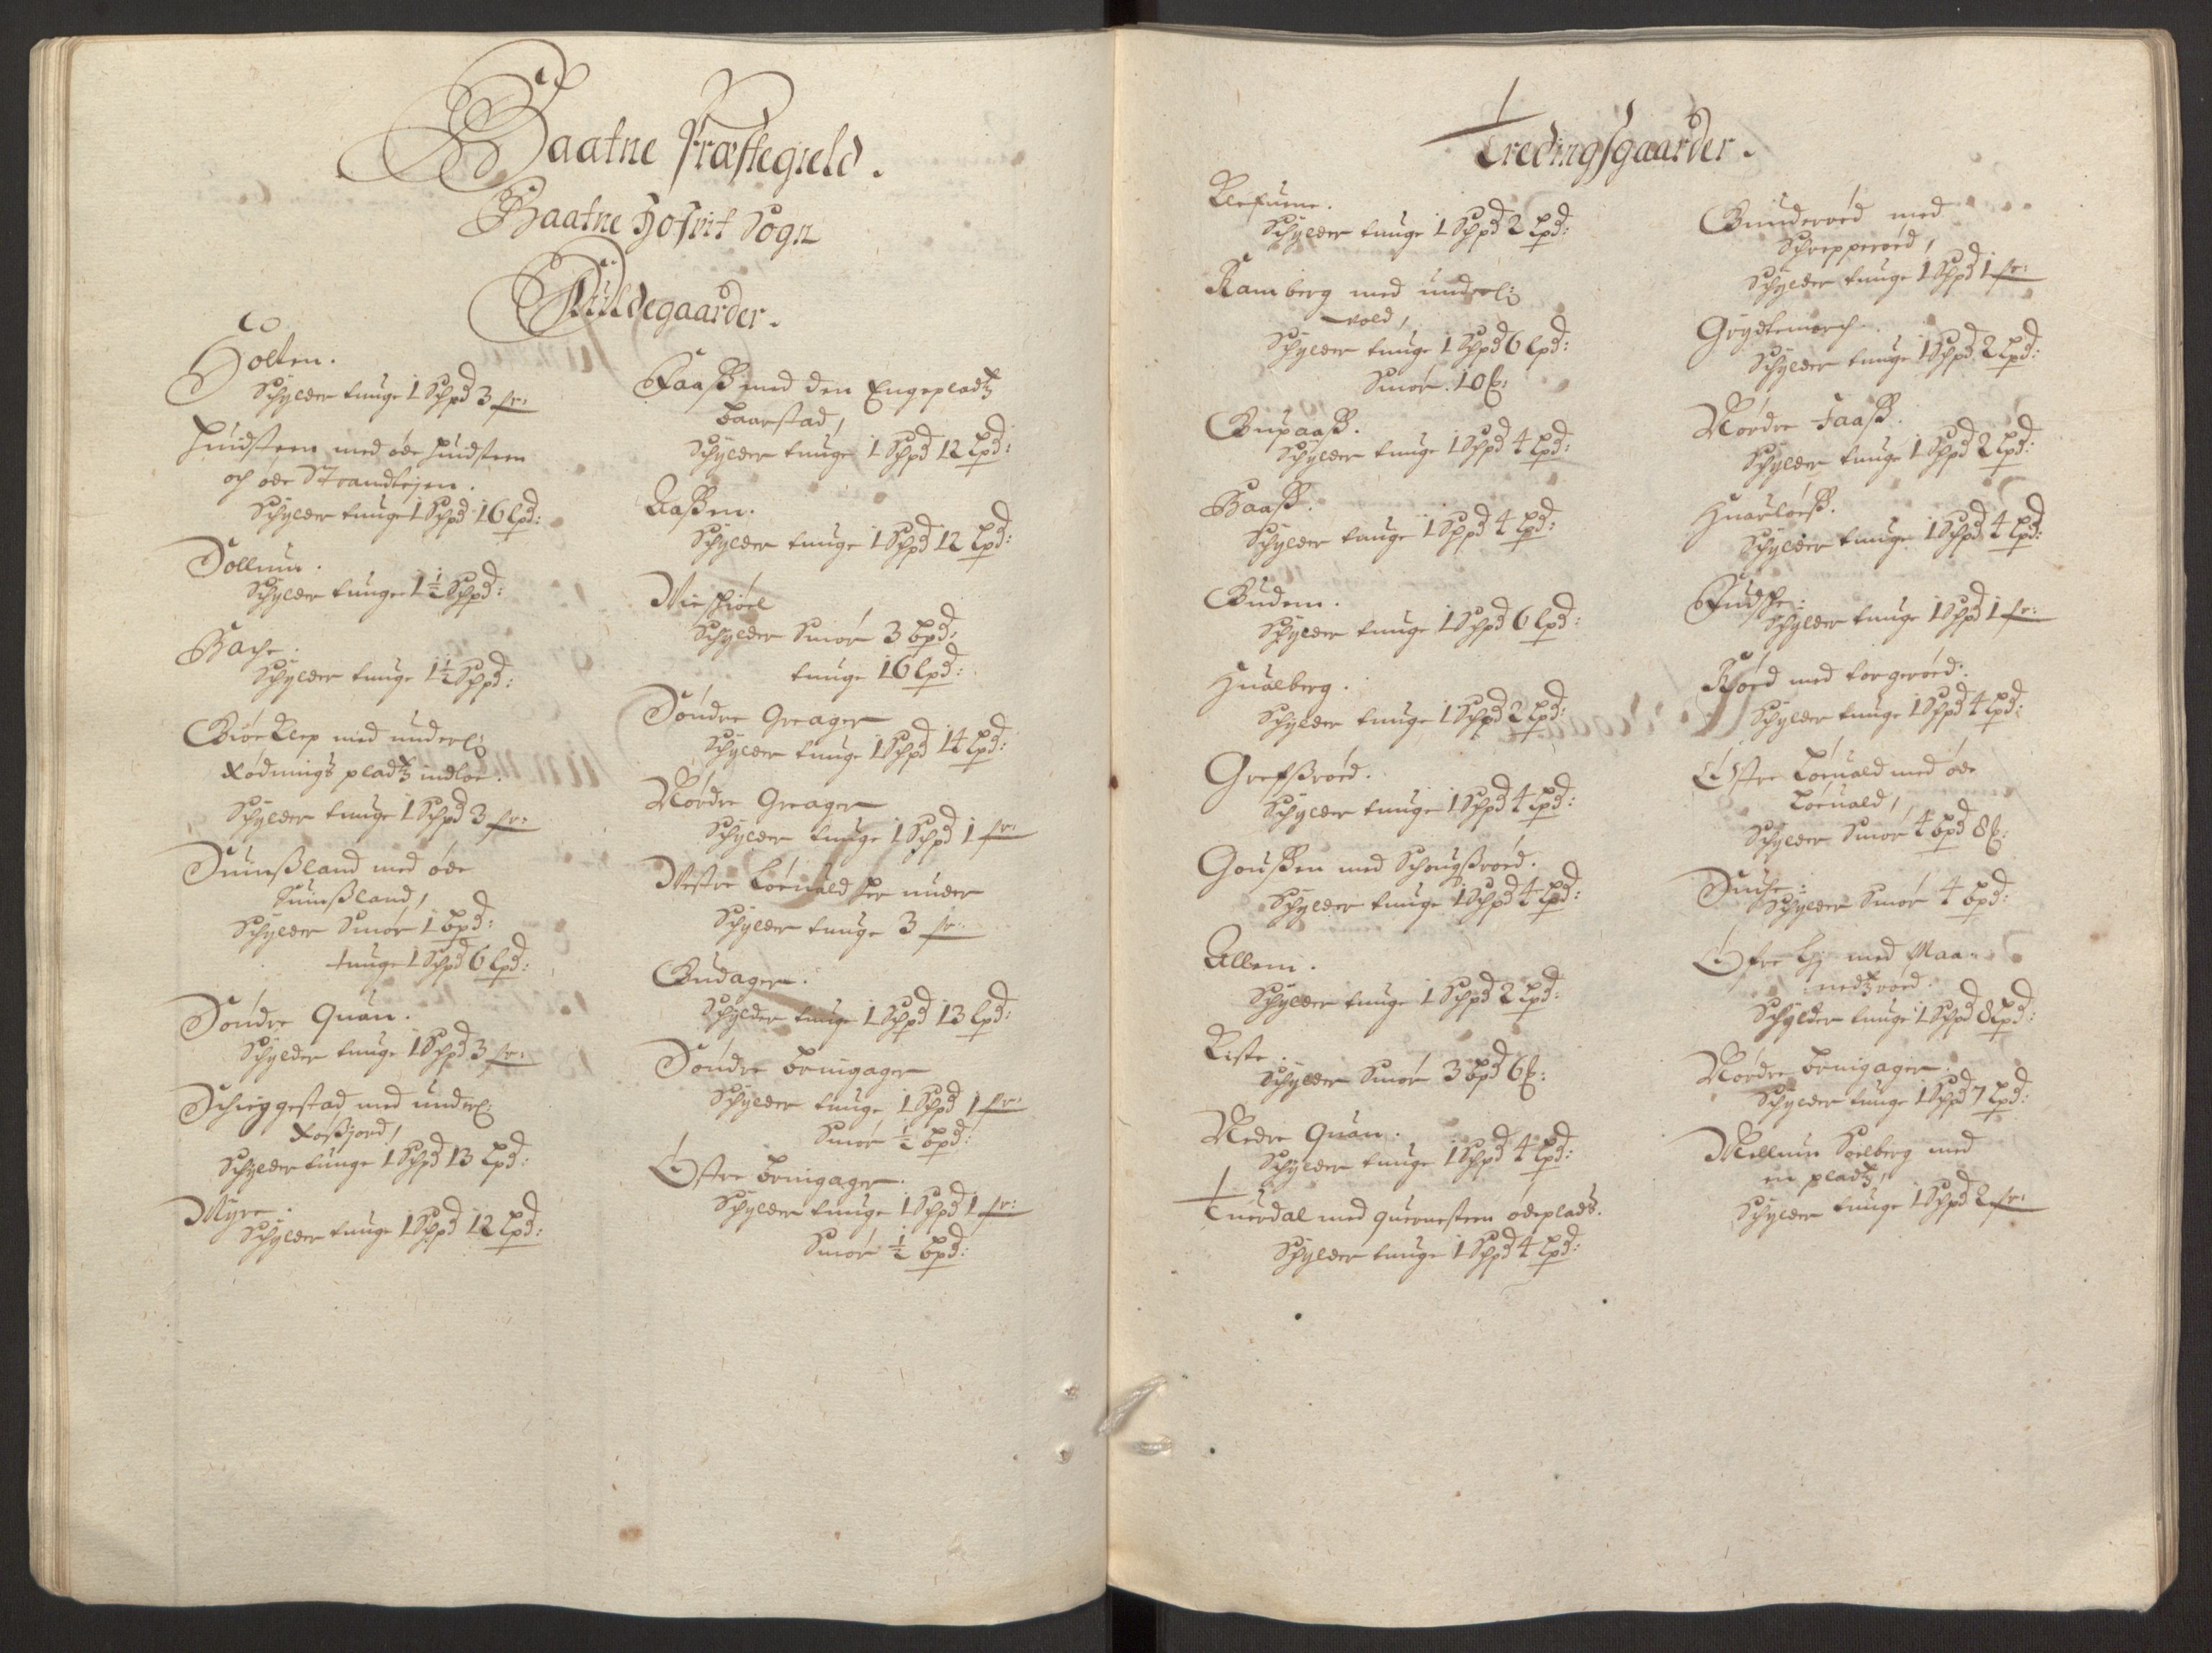 Baatne Præstegield.
Baatne Hofvit Sogn
Fuldegaarder.
Holten.
Schylder tunge 1 Schpd 3 fr:
Huidsteen med øde Huidsteen
och øde Strandlejen.
Schylder tunge 1 Schpd 16 Lpd:
Sollum.
Schylder tunge 1½ Schpd:
Bache.
Schylder tunge 1½ Schpd:
Biørklep med underl:
Rødnings pladtz
Schylder tunge 1 Schpd 3 fr:
Sunnßland med øde
Sunnßland,
Schylder Smør 1 bpd:
tunge 1 Schpd 6 Lpd:
Søndre Quan.
Schylder tunge 1 Schpd 3 fr:
Schiggestad med underl:
Roßjord,
Schylder tunge 1 Schpd 13 Lpd:
Myre.
Schylder tunge 1 Schpd 12 Lpd:
Faaß med den Engepladtz
Baarstad,
Schylder tunge 1 Schpd 12 Lpd:
Aaßen.
Schylder tunge 1 Schpd 12 Lpd:
Schylder Smør 3 bpd:
tunge 16 Lpd:
Søndre Greager
Schylder tunge 1 Schpd 14 Lpd:
Nordre Greager
Schylder tunge 1 Schpd 1 fr:
Vestre Løeuald her under
Schylder tunge 3 fr:
Budager.
Schylder tunge 1 Schpd 13 Lpd:
Søndre Brnigager
Schylder tunge 1 Schpd 1 fr:
Smør ½ bpd:
Østre Brnigager.
Schylder tunge 1 Schpd 1 fr:
Smør ½ bpd:
Tredingsgaarder.
Klefuene.
Schylder tunge 1 Schpd 2 Lpd:
Ramberg med underl:
vold,
Schylder tunge 1 Schpd 6 Lpd:
Smør 10 ℔:
Bupaaß.
Schylder tunge 1 Schpd 4 Lpd:
Baaß.
Schylder tunge 1 Schpd 4 Lpd:
Budem.
Schylder tunge 1 Schpd 6 Lpd:
Hualberg.
Schylder tunge 1 Schpd 2 Lpd:
Grefßrøed.
Schylder tunge 1 Schpd 4 Lpd:
Goußen med Schougßrøed.
Schylder tunge 1 Schpd 4 Lpd:
Allem.
Schylder tunge 1 Schpd 2 Lpd:
Riste.
Schylder Smør 3 bpd 6 ℔:
Nedre Quan.
Schylder tunge 1 Schpd 4 Lpd:
Tuerdal med quernesteen ødeplads.
Schylder tunge 1 Schpd 4 Lpd:
Gunderøed med
Schrepperøed,
Schylder tunge 1 Schpd 1 fr:
Grydtemorch.
Schylder tunge 1 Schpd 2 Lpd:
Nordre Faaß.
Schylder tunge 1 Schpd 2 Lpd:
Huarløeß.
Schylder tunge 1 Schpd 4 Lpd:
Fudske:
Schylder tunge 1 Schpd 1 fr:
Røed med torgerøed.
Schylder tunge 1 Schpd 4 Lpd:
Østre Løeuald med øde
Løeuald,
Schylder Smør 4 bpd 8 ℔:
Schylder Smør 4 bpd:
Øfre By med Maa-
nedtzrøed.
Schylder tunge 1 Schpd 8 Lpd:
Nordre Brnigager.
Schylder tunge 1 Schpd 7 Lpd:
Mellum Soelberg med
en pladtz,
Schylder tunge 1 Schpd 2 fr: